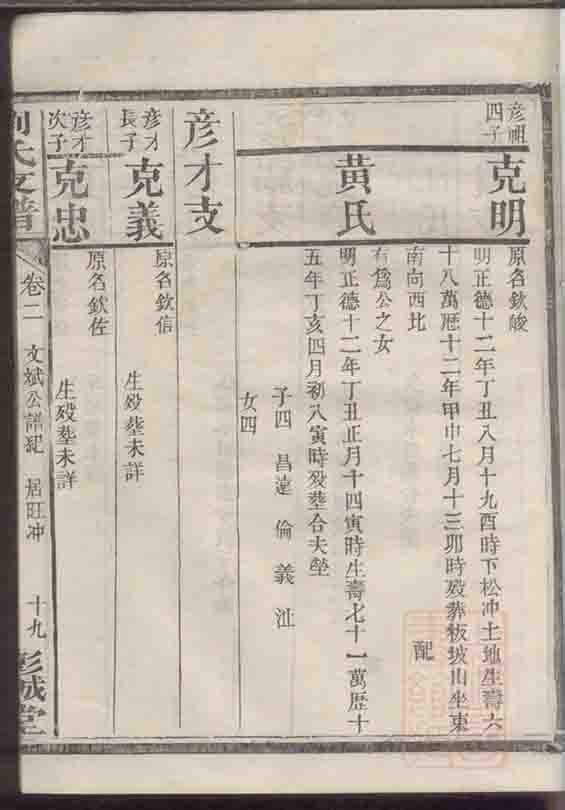 彥祖
四子
克明
原名欽峻
明正德十二年丁丑八月十九酉時下松冲土地生壽六
十八萬厯十二年甲申七月十三卯時殁葬板坡山坐東
南向西北
配
黄氏
有爲公之女
明正德十二年丁丑正月十四寅時生壽七十一萬厯十
五年丁亥四月初八寅時殁塟合夫塋
子四 昌達 倫 義 沚
女四
彥才支
彥才
長子
克義
原名欽信
生殁塟未詳
彥才
次子
克忠
原名欽佐
生殁塟未詳
氏支譜
卷二
文斌公譜
居旺冲
十九
彭城堂